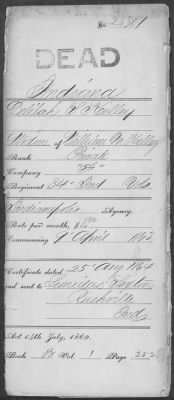 No. 23801
DEAD
Indiana
Delilah Kelley
Widow of William M Kelley
Rank Private
Company "H"
Regiment 84" Ind Vols
Indianapolis Agency.
Rate per month, $8 00
Commencing April 1863
Certificate dated 25" Aug 1864
and sent to Leonidas
Rushville
Ind
Act 14th July, 1862.
Book B Vol. 1 Page 25